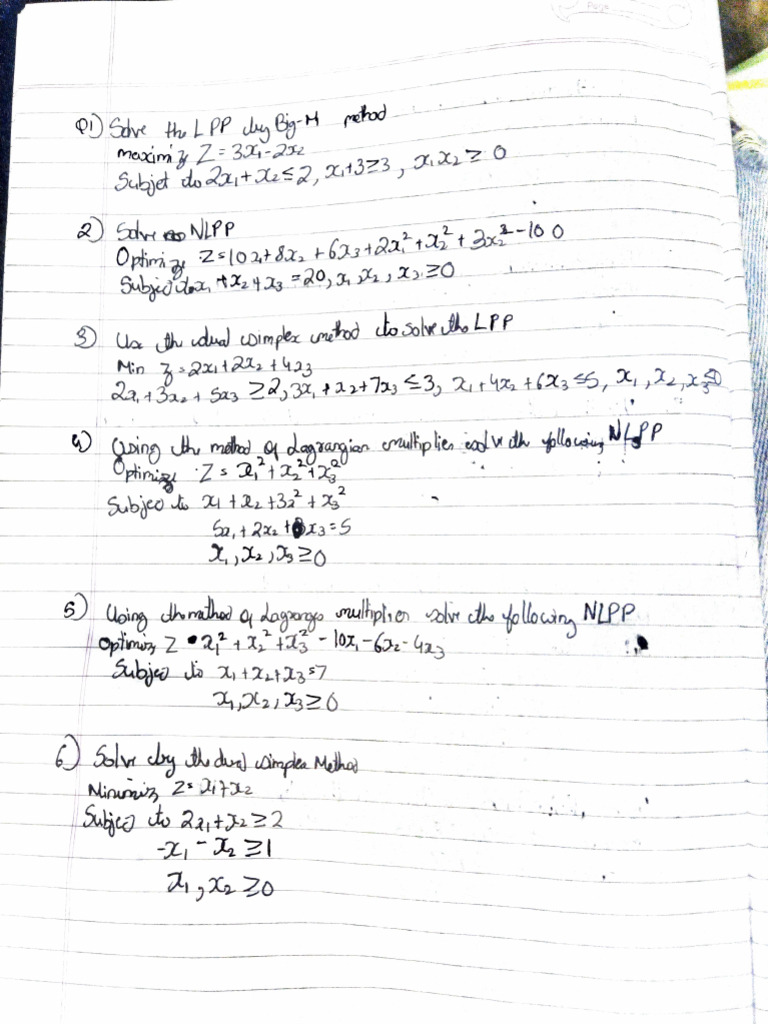 Page
Q1) Solve the LPP by Big-M method
maximiz Z = 3x₁-2x₂
Subjet to 2x₁+x₂≤2, x₁+3≥3, x₁x₂ ≥ 0
2) Solve NLPP
Optimize Z=10x₁+8x₂+6x₃+2x₁²+x₂²+3x₂²-100
Subject to x₁+x₂+x₃=20, x₁,x₂,x₃≥0
3) Use the dual simplex method to solve the LPP
Min z=2x₁+2x₂+4x₃
2x₁+3x₂+5x₃ ≥2, 3x₁+x₂+7x₃ ≤3, x₁+4x₂+6x₃≤5, x₁,x₂,x₃≥0
4) Using the method of Lagrangian multiplier solve the following NLPP
Optimize Z= x₁²+x₂²+x₃²
Subject to x₁+x₂+3x²+x₃²
5x₁+2x₂+x₃=5
x₁,x₂,x₃≥0
5) Using the method of Lagrange multiplier solve the following NLPP
Optimiz Z x₁²+x₂²+x₃²-10x₁-6x₂-4x₃
Subject to x₁+x₂+x₃=7
x₁,x₂,x₃≥0
6) Solve by the dual simplex Method
Minimiz Z=x₁+x₂
Subject to 2x₁+x₂≥2
-x₁-x₂≥1
x₁,x₂≥0